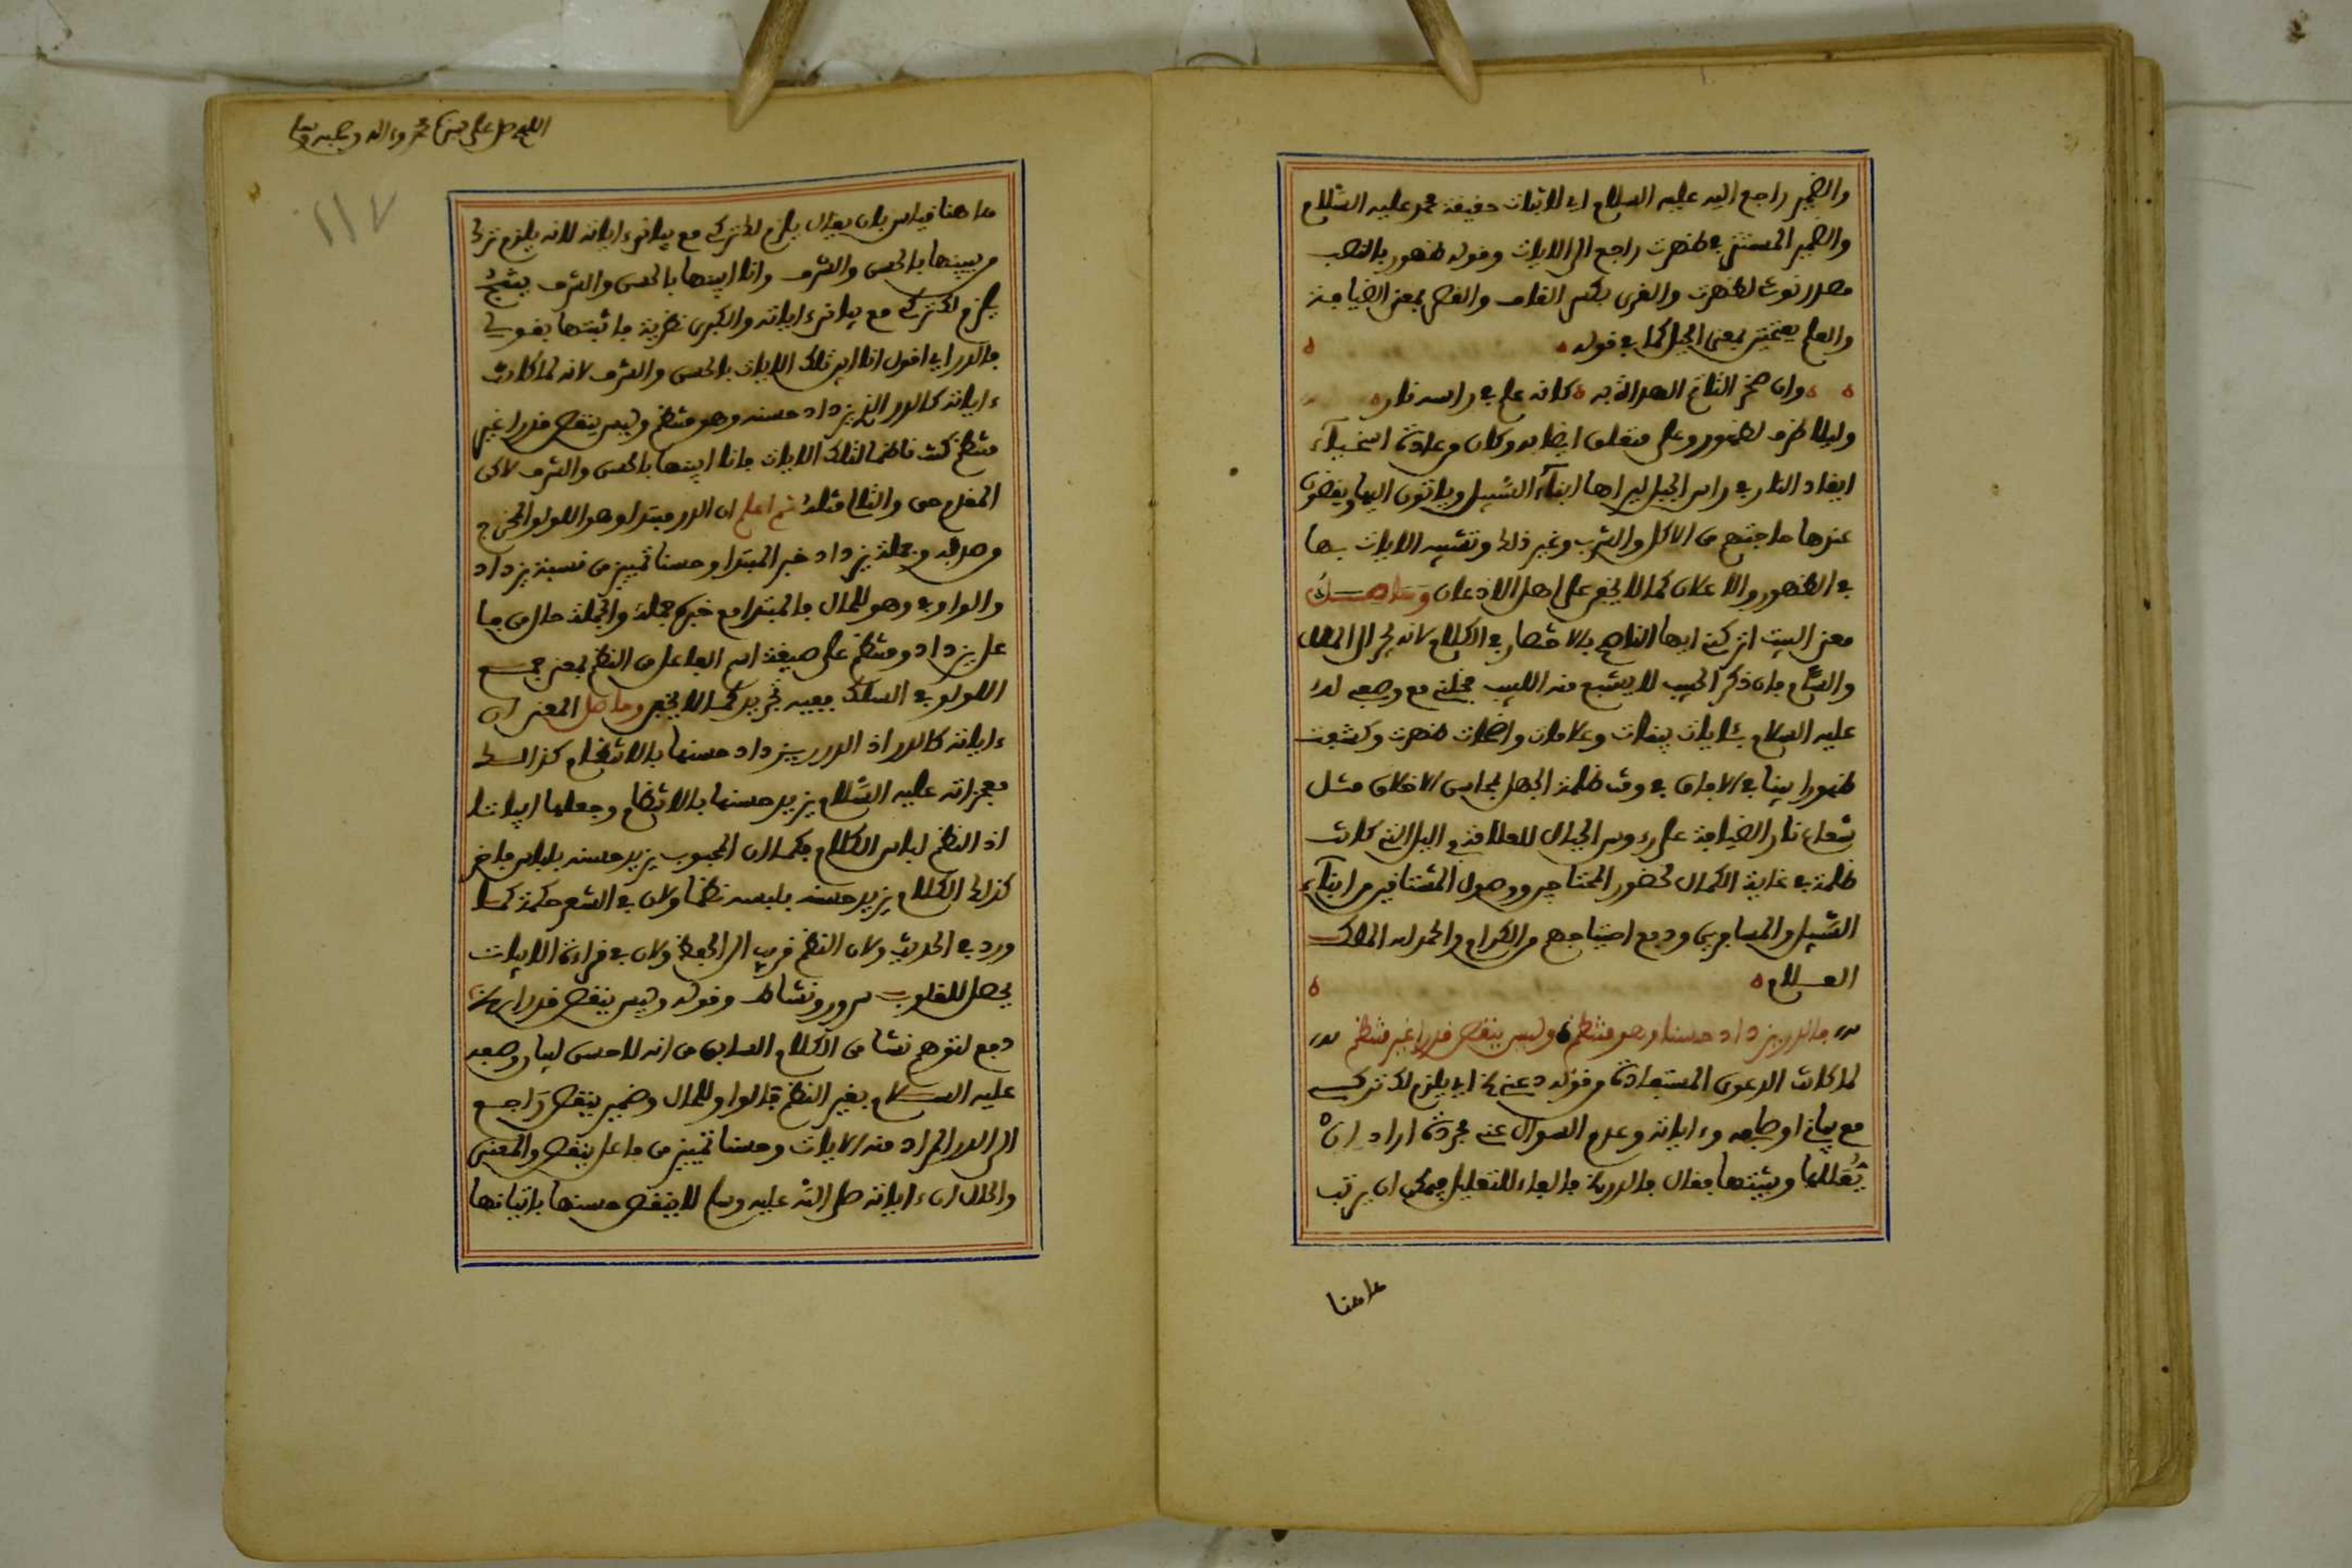 والضمير راجع اليه عليه السلام اي لاثبات حقيقة محمد عليه السّلام
والضمير المستتر في ظهرت راجع الى الايات وقوله ظهور بالنصب
مصدر نوعي لظهرت والقرى بكسر القاف والقصر بمعنى الضيافة
والعلم بفتحتين بمعنى الجبل كما في قوله
وان صخرا لتاتم الهداة به كانه علم في راسه نار
وليلا ظرف لظهور وعلى متعلق ايضا به وكان من عادة اسخياء
ايقاد النار في راس الجبل ليراها ابناء السّبيل وياتون اليها ويقضون
عندها حاجتهم من الاكل والشرب وغير ذلك وتشبيه الايات بها
في الظهور والاعلان كما لا يخفى على اهل الاذعان وحاصل
معنى البيت اتركني ايها الناصح بالاختصار في الكلام لانه يجر الى الملال
والسئام فان ذكر الحبيب لا يشبع منه اللبيب فخلني مع وصفي له
عليه السلام بئايات بينات وعلامات واضحات ظهرت وكشفت
ظهورا بينا في الافاق في وقت ظلمة الجهل بمحاسن الاخلاق مثل
شعاع نار الضيافة على رءوس الجبال للعلامة في اليل التي كانت
ظلمة في غاية الكمال لحضور المحتاجين ووصول المشتاقين من ابناء
السّبيل والمسافرين ودفع احتياجهم من الكرام والحمد لله الملك
العلام
فالدر يزداد حسنا وهو منتظم وليس ينقص قدرا غير منتظم
لما كانت الدعوى المستفادة من قوله دعني اي يلزم لك تركي
مع بياني اوصافه وءاياته وعدم السوال عني مجردة اراد ان
يُعللها ويثبتها فقال فالدر الخ فالفاء للتعليل فيمكن ان يرتب
هاهنا
اللهم صل على سيدنا محمد وءاله وصحبه وسلم
١١٧
هاهنا قياس بان يقال يلزم لك تركي مع بياني ءاياته لانه يلزم ترك
من يبينها بالحسن والشرف وانا ابينها بالحسن والشرف ينتج
يلزم لك تركي مع بياني ءاياته والكبرى نظرية فاثبتها بقوله
فالدر اي اقول انا ابين تلك الايات بالحسن والشرف لانه لما كانت
ءاياته كالدر الذي يزداد حسنه وهو منتظم وليس ينقص قدرا غير
منتظم كنت ناظما لتلك الايات فانا ابينها بالحسن والشرف لاكن
المقدم حق والتالي مثله ثم اعلم ان الدر مبتدا وهو اللولو المخرج
من صدفه وجملة يزداد خبر المبتدا وحسنا تمييز من نسبة يزداد
والواو في وهو للحال فالمبتدا مع خبره جملة والجملة حال من فا
عل يزداد ومنتظم على صيغة اسم الفاعل من النظم بمعنى جمع
اللولو في السلك ففيه تجريد كما لا يخفى وحاصل المعنى ان
ءاياته كالدر اذ الدر يزداد حسنها بالانتظام كذالك
معجزاته عليه السّلام يزيد حسنها بالانتظام وجعلها ابياتا
اذ النظم لباس الكلام فكما ان المحبوب يزيد حسنه بلباس فاخر
كذلك الكلام يزيد حسنه بلبسه نظما ولان في الشعر حكمة كما
ورد في الحديث ولان النظم قريب الى الحفظ ولان في قراءة الابيات
يحصل للقلوب سرور ونشاط وقوله وليس ينقص قدرا الخ
دفع لتوهم نشا من الكلام السابق من انه لا حسن لبيان وصفه
عليه السلام بغير النظم فالواو للحال وضمير ينقص رَاجع
الى الدر المراد منه الايات وحسنا تمييز من فاعل ينقص والمعنى
والحال ان ءاياته صلى الله عليه وسلم لا ينقص حسنها باتيانها